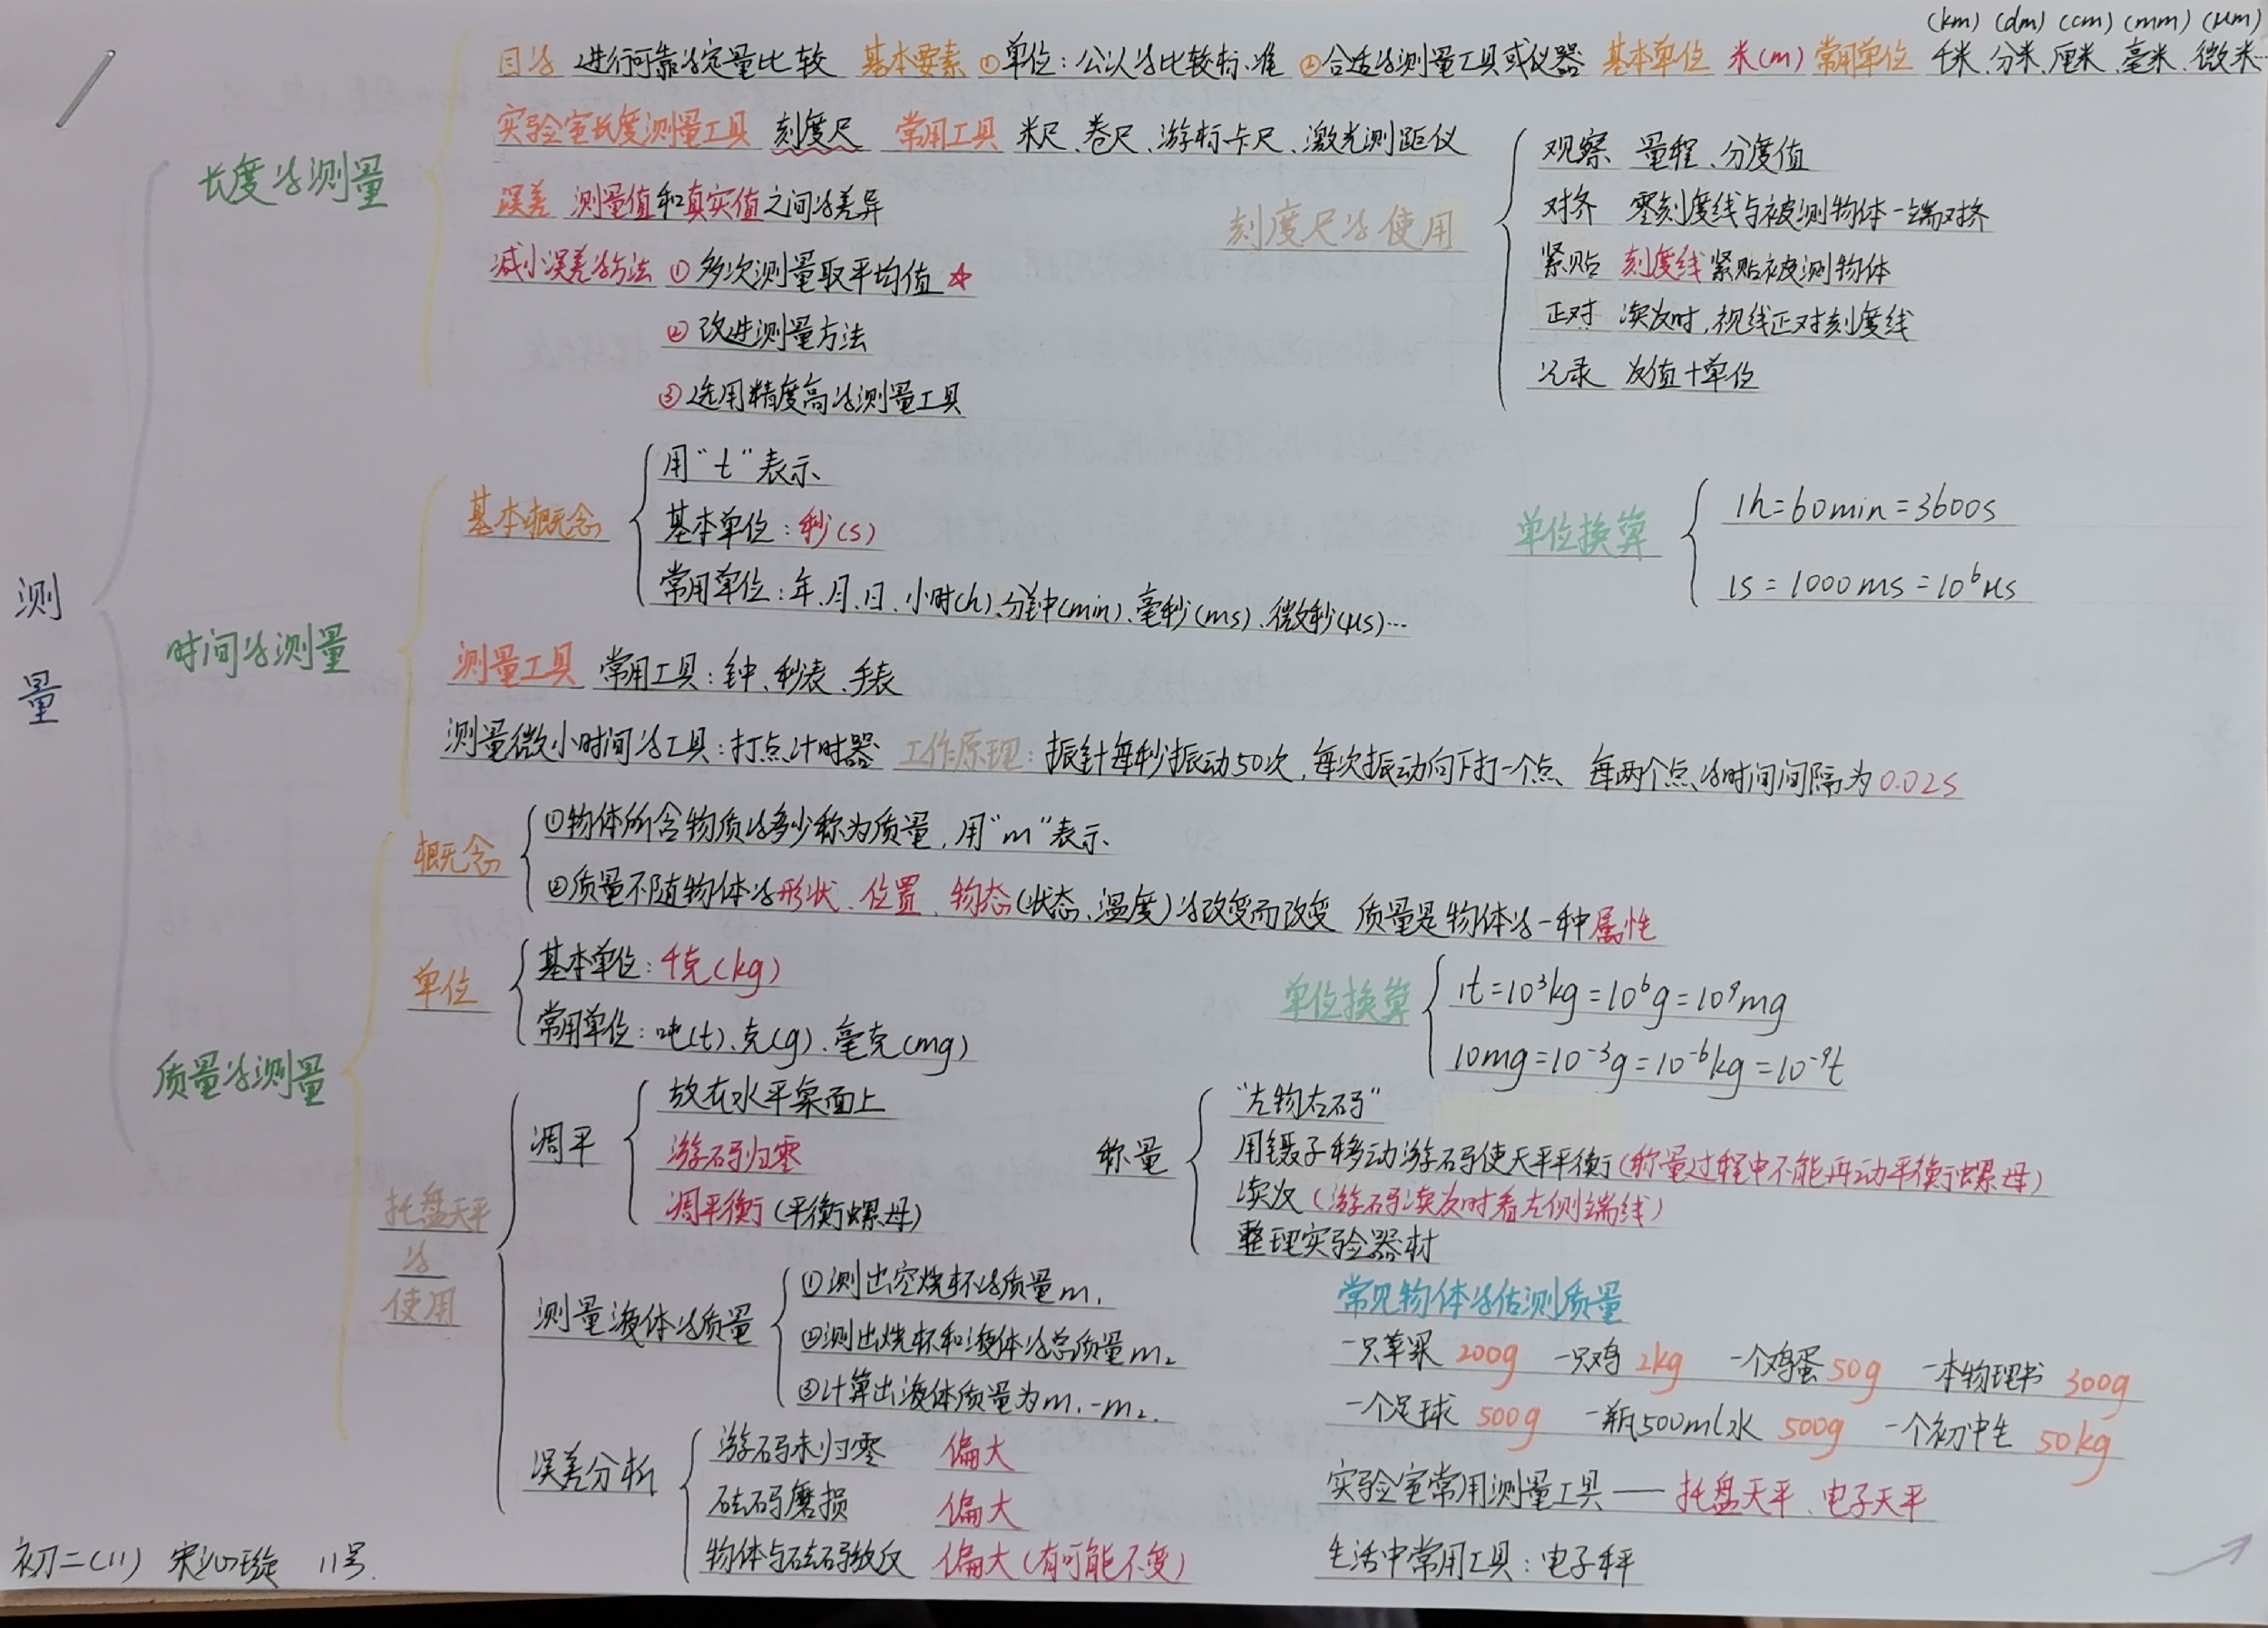 (km) (dm) (cm) (mm) (μm)
目的 进行可靠的定量比较 基本要素 ①单位：公认的比较标准 ②合适的测量工具或仪器 基本单位 米(m) 常用单位 千米、分米、厘米、毫米、微米…
实验室长度测量工具 刻度尺 常用工具 米尺、卷尺、游标卡尺、激光测距仪
长度的测量
误差 测量值和真实值之间的差异
减小误差的方法 ①多次测量取平均值☆
②改进测量方法
③选用精度高的测量工具
刻度尺的使用
观察 量程、分度值
对齐 零刻度线与被测物体一端对齐
紧贴 刻度线紧贴被测物体
正对 读数时,视线正对刻度线
记录 数值+单位
测
量
时间的测量
基本概念
用“t”表示
基本单位：秒(s)
常用单位：年、月、日、小时(h)、分钟(min)、毫秒(ms)、微秒(μs)…
单位换算
1h=60min=3600s
1s=1000ms=10⁶μs
测量工具 常用工具：钟、秒表、手表
测量微小时间的工具：打点计时器 工作原理：振针每秒振动50次,每次振动向下打一个点、每两个点的时间间隔为0.02s
质量的测量
概念
①物体所含物质的多少称为质量,用“m”表示
②质量不随物体的形状、位置、物态(状态、温度)的改变而改变 质量是物体的一种属性
单位
基本单位：千克(kg)
常用单位：吨(t)、克(g)、毫克(mg)
单位换算
1t=10³kg=10⁶g=10⁹mg
10mg=10⁻³g=10⁻⁶kg=10⁻⁹t
托盘天平
的
使用
调平
放在水平桌面上
游码归零
调平衡(平衡螺母)
称量
“左物右码”
用镊子移动游码使天平平衡(称量过程中不能再动平衡螺母)
读数(游码读数时看左侧端线)
整理实验器材
测量液体的质量
①测出空烧杯的质量m₁
②测出烧杯和液体的总质量m₂
③计算出液体质量为m₁-m₂.
误差分析
游码未归零 偏大
砝码磨损 偏大
物体与砝码放反 偏大(有可能不变)
常见物体的估测质量
一只苹果 200g 一只鸡 2kg 一个鸡蛋 50g 一本物理书 300g
一个足球 500g 一瓶500ml水 500g 一个初中生 50kg
实验室常用测量工具——托盘天平、电子天平
生活中常用工具：电子秤
初二(11) 宋沁璇 11号.